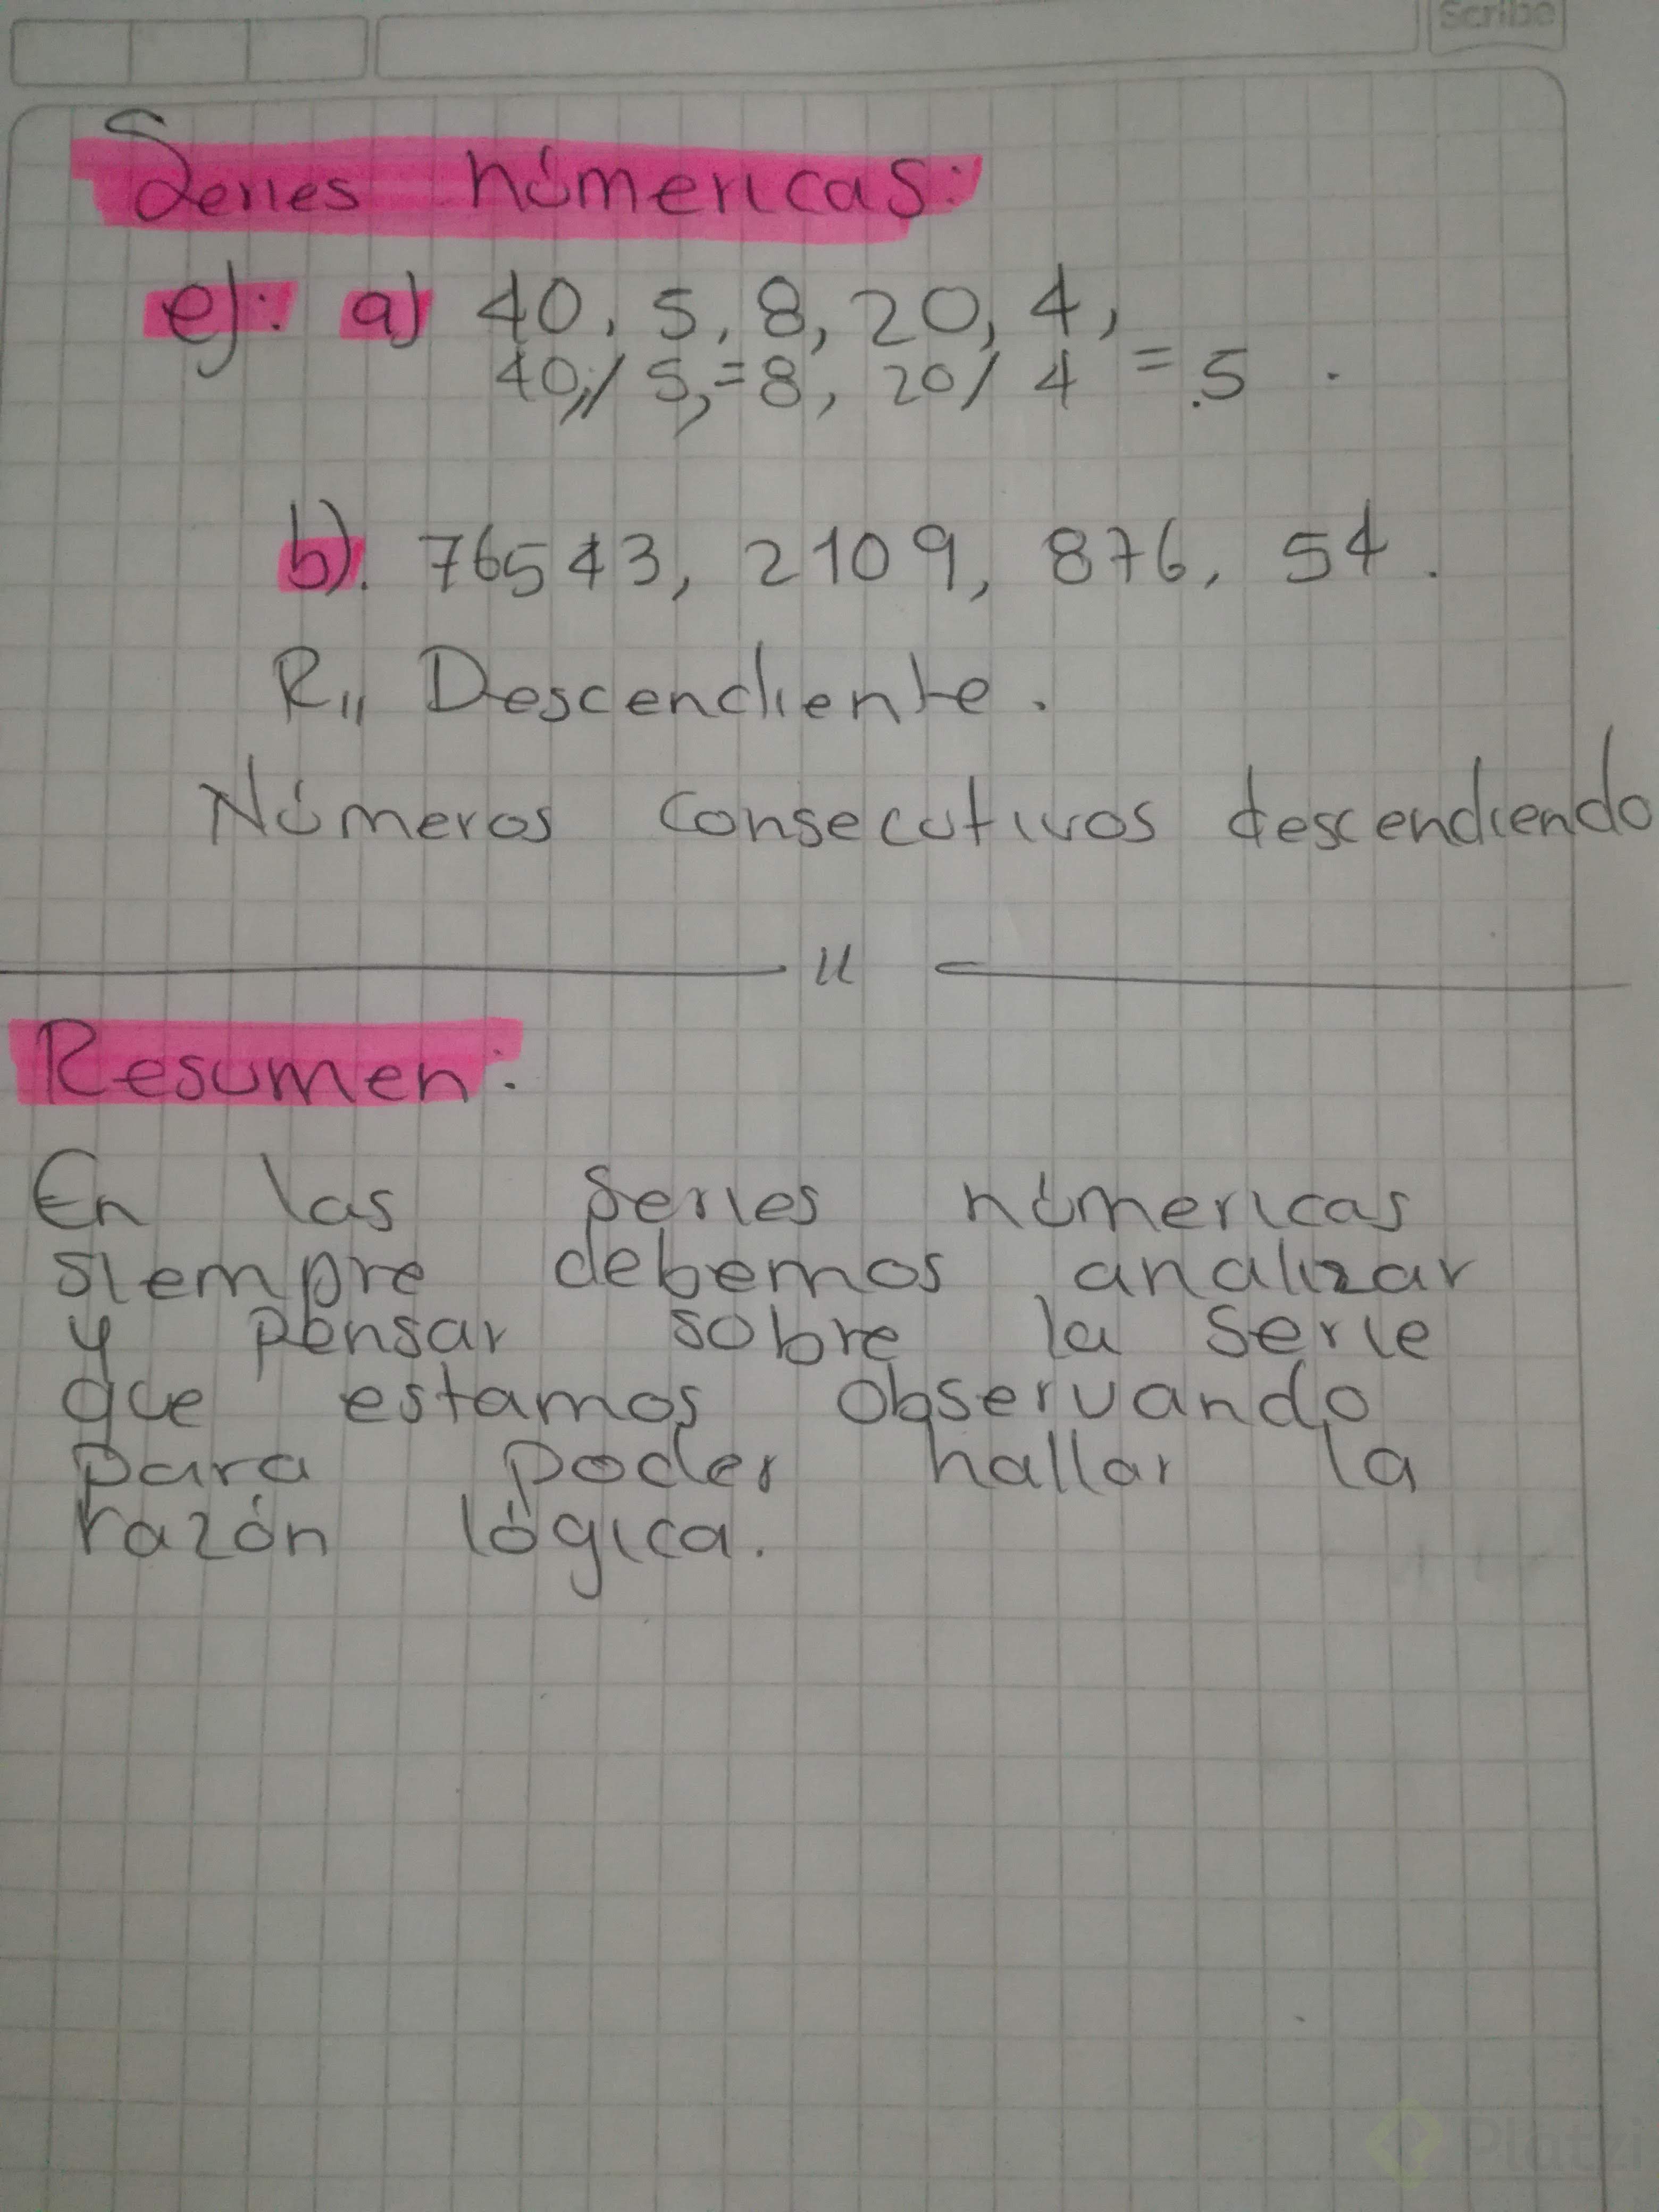 Scribe
Series númericas:
ej: a) 40, 5, 8, 20, 4,
40,/ 5,=8, 20/ 4 = 5 .
b). 76543, 2109, 876, 54.
R,, Descendiente.
Números consecutivos descendiendo
En las series númericas
Resumen:
siempre debemos analizar
y pensar sobre la serie
que estamos observando
para poder hallar la
razón lógica.
Platzi